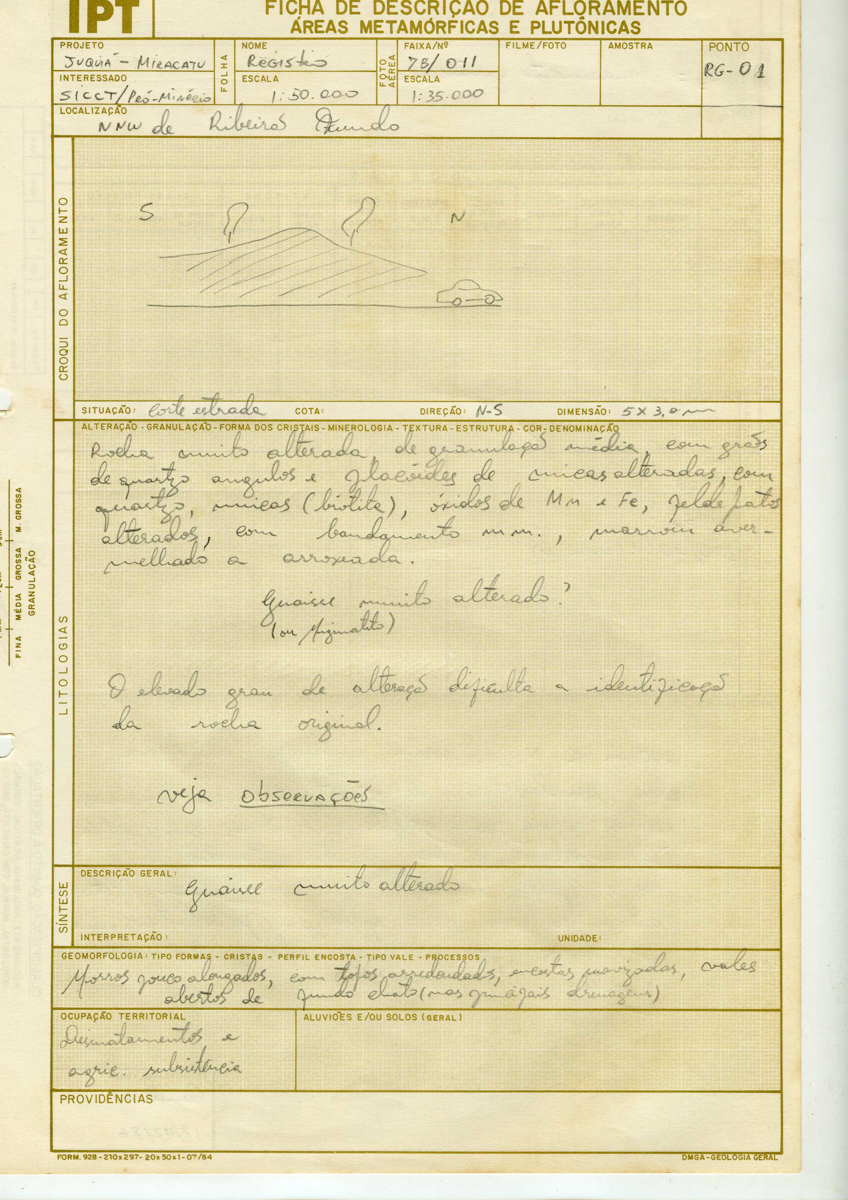 IPT
FICHA DE DESCRIÇÃO DE AFLORAMENTO
ÁREAS METAMÓRFICAS E PLUTÔNICAS
PROJETO
JUQUIÁ - MIRACATU
INTERESSADO
SICCT/Pró-Minério
FOLHA
NOME
Registro
ESCALA
1:50.000
FOTO AÉREA
FAIXA/Nº
7B/011
ESCALA
1:35.000
FILME/FOTO
AMOSTRA
PONTO
RG-01
LOCALIZAÇÃO
NNW de Ribeirão Fundo
CROQUI DO AFLORAMENTO
S
N
SITUAÇÃO: Corte estrada COTA: DIREÇÃO: N-S DIMENSÃO: 5 x 3,0 m
LITOLOGIAS
ALTERAÇÃO - GRANULAÇÃO - FORMA DOS CRISTAIS - MINEROLOGIA - TEXTURA - ESTRUTURA - COR - DENOMINAÇÃO
Rocha muito alterada, de granulação média, com grãos
de quartzo angulos e placóides de micas alteradas, com
quartzo, micas (biotita), óxidos de Mn e Fe, feldspatos
alterados, com bandamento mm., marrom aver-
melhado a arroxeada.
Gnaisse muito alterado?
(ou Migmatito)
O elevado grau de alteração dificulta a identificação
da rocha original.
veja OBSERVAÇÕES
GRANULAÇÃO
FINA MÉDIA GROSSA M. GROSSA
SÍNTESE
DESCRIÇÃO GERAL:
Gnaisse muito alterado
INTERPRETAÇÃO: UNIDADE:
GEOMORFOLOGIA: TIPO FORMAS - CRISTAS - PERFIL ENCOSTA - TIPO VALE - PROCESSOS
Morros pouco alongados, com topos arredondados, encostas suavizadas, vales
abertos de fundo chato (nas principais drenagens)
OCUPAÇÃO TERRITORIAL
Desmatamentos e
agric. subsistência
ALUVIÕES E/OU SOLOS (GERAL)
PROVIDÊNCIAS
FORM. 928 - 210x297 - 20x50x1 - 07/84
DMGA - GEOLOGIA GERAL